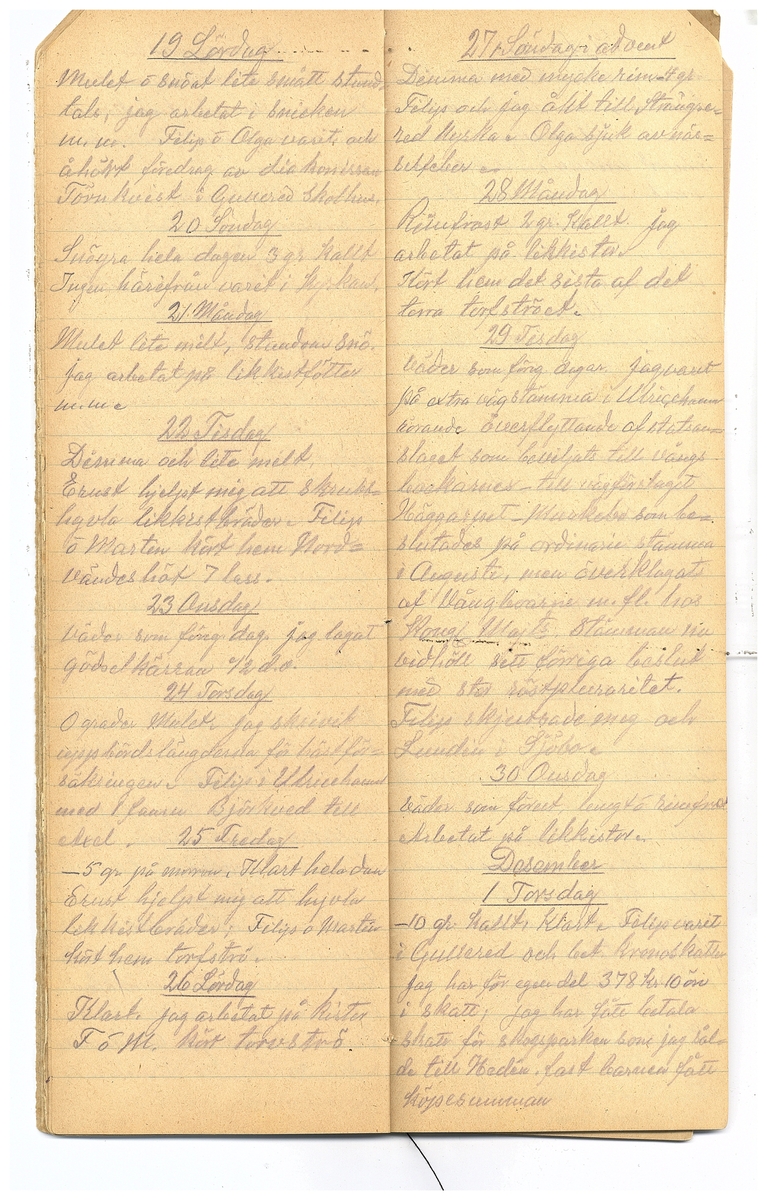 19 Lördag
Mulet o snöat lite smått stund-
tals, jag arbetat i snicken
m.m. Filip o Olga varit och
åhört föredrag av diakonissan
Törnkvist i Gullered Skolhus.
20 Söndag
Snöyra hela dagen 3 gr Kallt
Ingen härifrån varit i Kyrkan.
21 Måndag
Mulet lite milt, stundom snö.
jag arbetat på likkistfötter
m.m.
22 Tisdag
Dimma och lite milt,
Ernst hjelpt mig att skrubb=
hyvla likkistbräder. Filip
o Marten kört hem Nord=
vändes höt 7 lass.
23 Onsdag
Väder som föreg dag. jag lagat
gödselkärran 1/2 d.o.
24 Torsdag
0 grader Mulet, jag skrivit
uppbördslängderna för hästför=
säkringen. Filip i Ulricehamn
med 1 famn Björkved till
Axel.
25 Fredag
-5 gr. på morron. Klart hela dan
Ernst hjelpt mig att hyvla
likkistbräder, Filip o Marten
kört hem torfströ.
26 Lördag
Klart. jag arbetat på kistor
F o M. kört torvströ.
27 1 Söndag i advent
Dimma med mycke rim -4 gr
Filip och jag åkt till Strängse=
red Kyrka. Olga sjuk av näs=
selfeber
28 Måndag
Rimfrost 2 gr. Kallt. jag
arbetat på likkistor.
Kört hem det sista af det
torra torfströet.
29 Tisdag
Väder som föreg dagar. jag varit
på extra vägstämma i Ulricehamn
rörande överflyttande af statsan=
slaget som beviljats till Vångs
backarnes - till vägföretaget
Häggarpet - Murkebo som be=
slutades på ordinarie stämma
i Augusti, men överklagats
af Vångboarne m.fl. hos
Kongl Majt. Stämman nu
vidhöll sitt förriga beslut
med stor röstpluraritet.
Filip skjutsade meg och
Lundin i Sjöbo.
30 Onsdag
Väder som förut lungt o rimfrost
Arbetat på likkistor.
Desember
1 Torsdag
-10 gr. kallt, Klart. Filip varit
i Gullered och bet. kronoskatten
jag har för egen del 378 Kr 10 öre
i skatt, jag har fått betala
skatt för skogsparken som jag sål-
de till Hedin. fast barnen fått
köpesumman